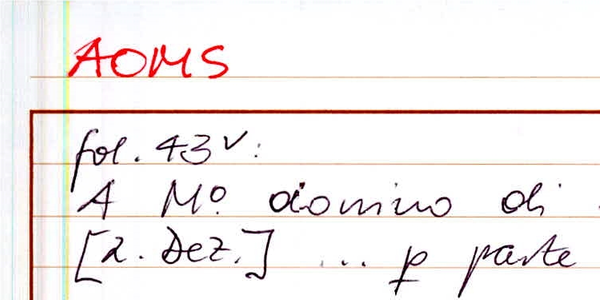 AOMS
fol. 43v:
A Mo. domino di
[2. Dez.] ... p parte